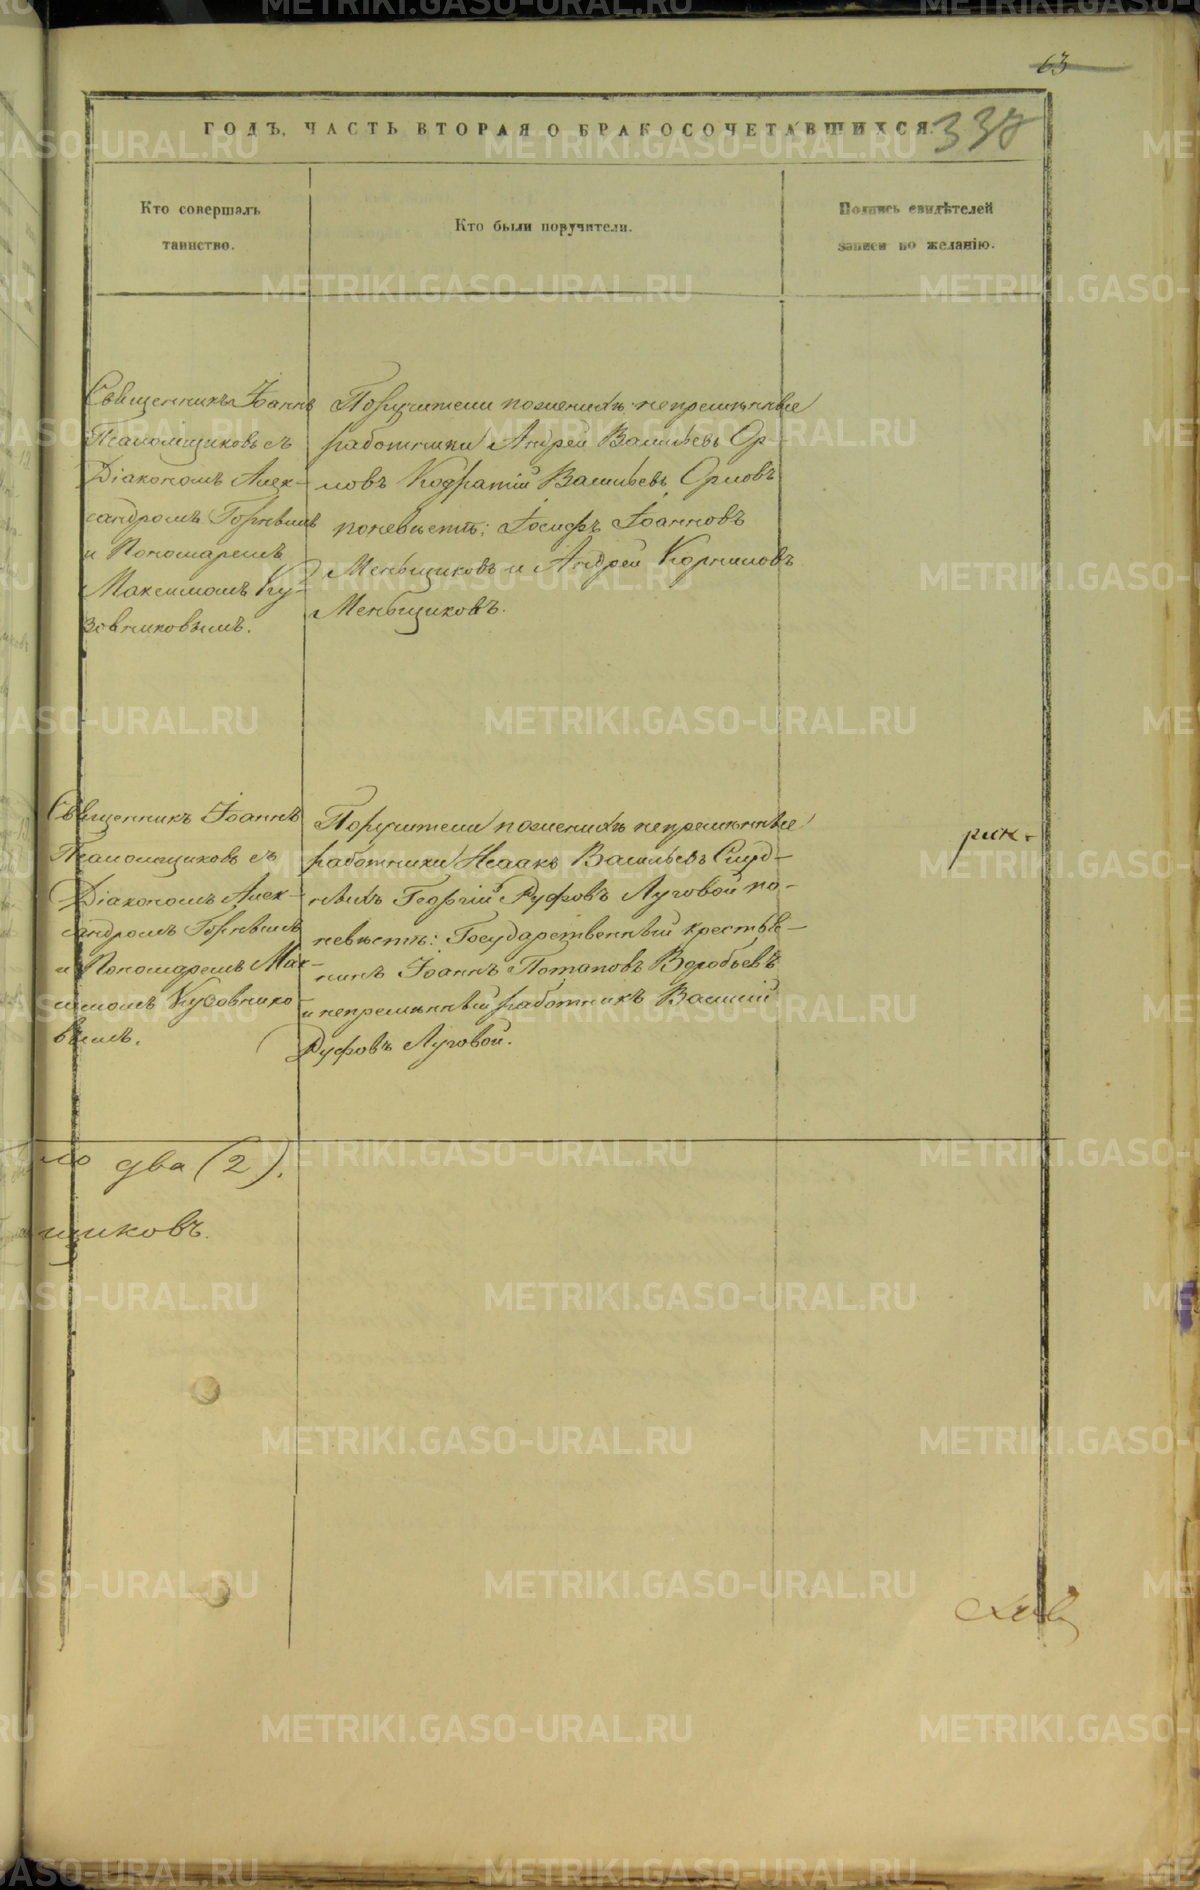 63
ГОДЪ, ЧАСТЬ ВТОРАЯ О БРАКОСОЧЕТАВШИХСЯ.
338
Кто совершалъ
таинство.
Кто были поручители.
Подпись свидѣтелей
записи по желанію.
Священникъ Іоаннъ
Псаломщиковъ съ
Діакономъ Алек-
сандромъ Горнымъ
и Пономаремъ
Максимомъ Ку-
зовниковымъ.
Поручители по женихѣ: непремѣнные
работники Андрей Васильевъ Ор-
ловъ Кодратій Васильевъ Орловъ
по невѣстѣ: Іосифъ Іоанновъ
Меньщиковъ и Андрей Корниловъ
Меньщиковъ.
Священникъ Іоаннъ
Псаломщиковъ съ
Діакономъ Алек-
сандромъ Горнымъ
и Пономаремъ Мак-
симомъ Кузовнико-
вымъ.
Поручители по женихѣ непремѣнные
работники Исаакъ Васильевъ
Георгій Руфовъ Луговой по-
невѣстѣ: Государственный крестья-
нинъ Іоаннъ Потаповъ Воробьевъ
и непремѣнный работникъ Василій
Руфовъ Луговой.
ло два (2).
щиковъ.
METRIKI.GASO-URAL.RU